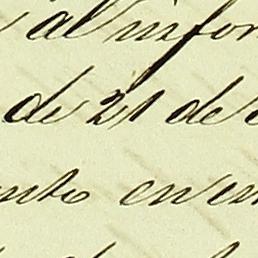 al infor
de 21 de
ento en en